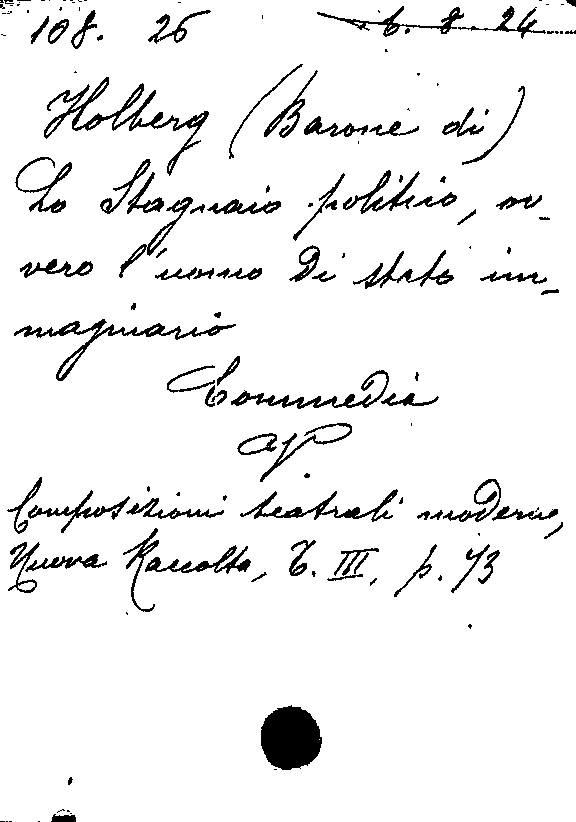 108. 26 6. 8. 24
Holberg (Barone di)
Lo Stagnaio politico, ov-
vero l'uomo di stato im-
maginario
Commedia
ap
Composizioni teatrali moderne,
Nuova Raccolta, T. III, p. 73